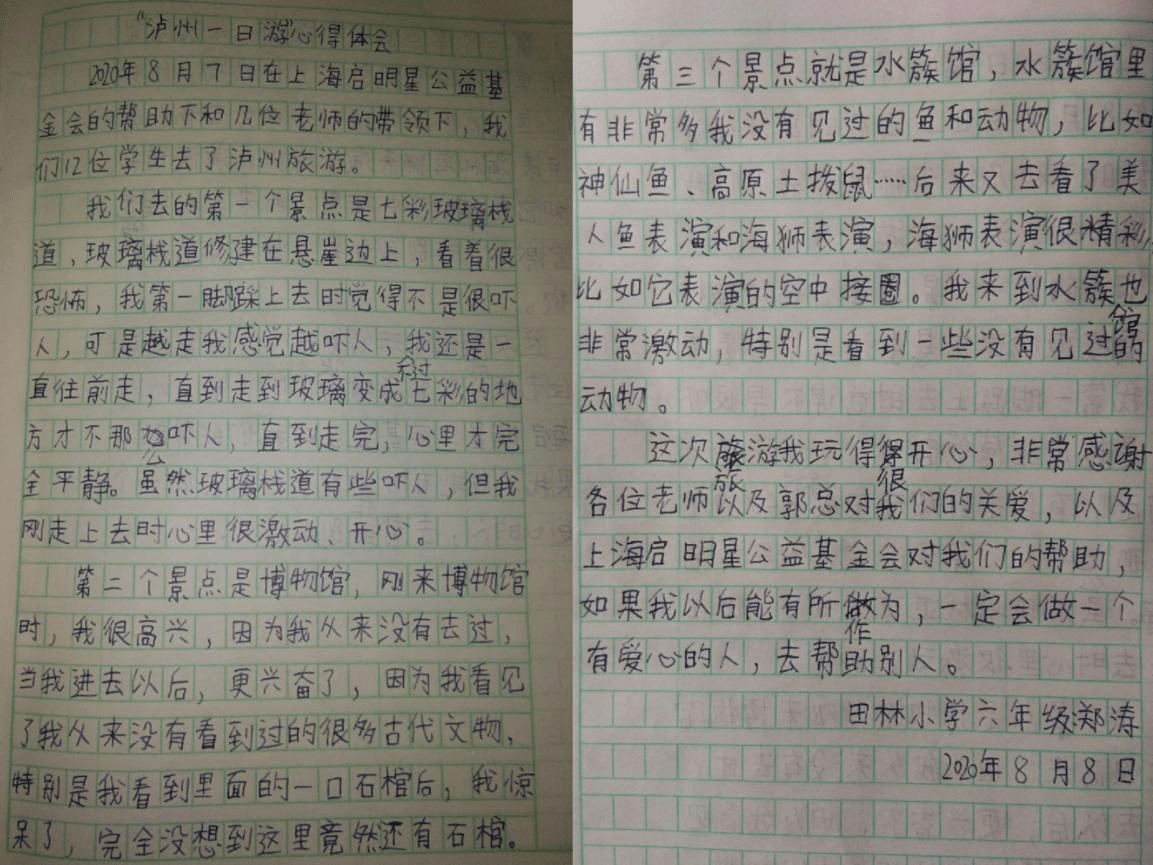 “泸州一日游”心得体会
2020年8月7日在上海启明星公益基
金会的帮助下和几位老师的带领下，我
们12位学生去了泸州旅游。
我们去的第一个景点是七彩玻璃栈
道，玻璃栈道修建在悬崖边上，看着很
恐怖，我第一脚踩上去时觉得不是很吓
人，可是越走我感觉越吓人，我还是一
直往前走，直到走到玻璃变成七彩的地
方才不那么吓人，直到走完，心里才完
全平静。虽然玻璃栈道有些吓人，但我
刚走上去时心里很激动、开心。
第二个景点是博物馆，刚来博物馆
时，我很高兴，因为我从来没有去过，
当我进去以后，更兴奋了，因为我看见
了我从来没有看到过的很多古代文物，
特别是我看到里面的一口石棺后，我惊
呆了，完全没想到这里竟然还有石棺。
第三个景点就是水簇馆，水簇馆里
有非常多我没有见过的鱼和动物，比如
神仙鱼、高原土拨鼠……后来又去看了美
人鱼表演和海狮表演，海狮表演很精彩，
比如它表演的空中接圈。我来到水簇馆也
非常激动，特别是看到一些没有见过的
动物。
这次旅游我玩得很开心，非常感谢
各位老师以及郭总对我们的关爱，以及
上海启明星公益基金会对我们的帮助，
如果我以后能有所作为，一定会做一个
有爱心的人，去帮助别人。
田林小学六年级郑涛
2020年8月8日